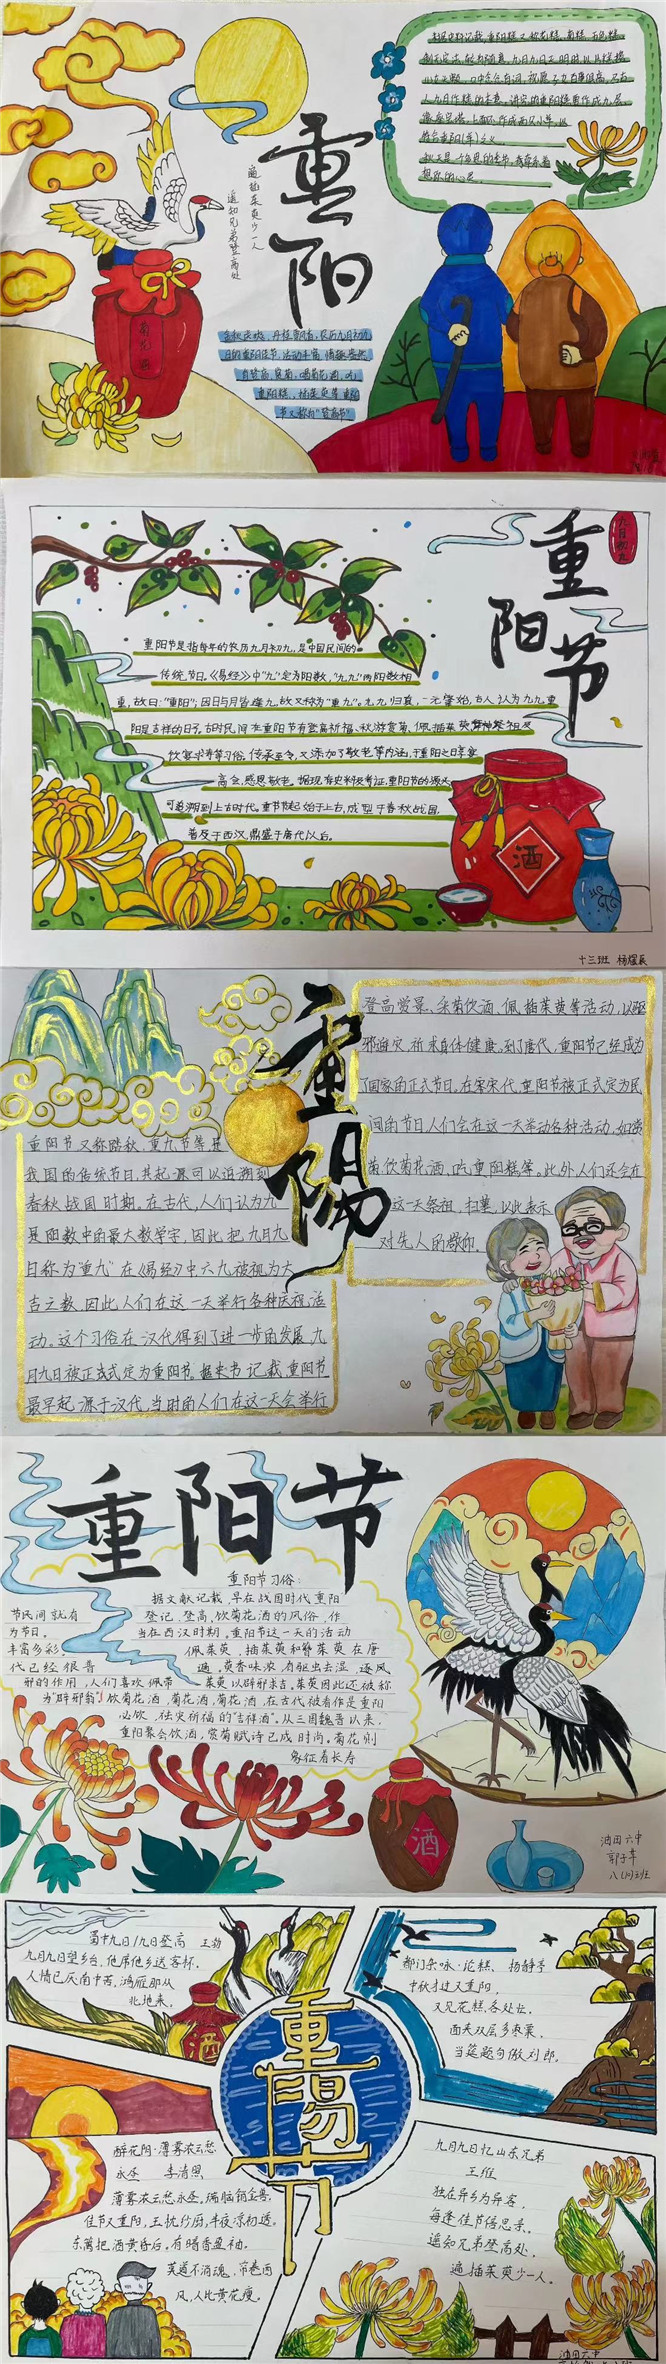 重阳
遥知兄弟登高处
遍插茱萸少一人
菊花酒
日的重阳佳节,活动丰富,情趣盎然
有登高,赏菊,喝菊花酒,吃
重阳糕,插茱萸等 重阳
节又称为"登高节"
九月初九
重阳节
重阳节是指每年的农历九月初九,是中国民间的
传统节日。《易经》中"九"定为阳数,"九九"两阳数相
重,故曰:"重阳";因日与月皆逢九,故又称为"重九"。九九归真,一元肇始,古人认为九九重
阳是吉祥的日子。古时民间在重阳节有登高祈福、秋游赏菊、佩插茱萸、拜神祭祖及
饮宴求寿等习俗。传承至今,又添加了敬老等内涵,于重阳之日享宴
高会,感恩敬老。据现存史料及考证,重阳节的源头
可追溯到上古时代。重节节起始于上古,成型于春秋战国,
普及于西汉,鼎盛于唐代以后。
酒
十三班 杨煜辰
重陽
重阳节又称踏秋、重九节等是
我国的传统节日,其起源可以追溯到
春秋战国时期。在古代,人们认为九
是阳数中的最大数字,因此把九月九
日称为"重九"在《易经》中六九被视为大
吉之数,因此人们在这一天举行各种庆祝活
动。这个习俗在汉代得到了进一步的发展,九
月九日被正式定为重阳节。据史书记载重阳节
最早起源于汉代,当时的人们在这一天会举行
登高赏景、采菊饮酒、佩插茱萸等活动,以驱
邪避灾,祈求身体健康。到了唐代,重阳节已经成为
了国家的正式节日。在宋代,重阳节被正式定为民
间的节日人们会在这一天举办各种活动,如赏
菊饮菊花酒、吃重阳糕等。此外人们还会在
这一天祭祖,扫墓,以此表示
对先人的敬仰。
重阳节
重阳节习俗:
据文献记载,早在战国时代重阳
节民间就有登记、登高、饮菊花酒的风俗,作
为节日。当在西汉时期。重阳节这一天的活动
丰富多彩。佩茱萸,插茱萸和簪茱萸在唐
代已经很普遍。萸香味浓,有驱虫去湿、逐风
邪的作用,人们喜欢佩带茱萸以辟邪求吉。茱萸因此还被称
为"辟邪翁"!饮菊花酒,菊花酒,菊花酒,在古代被看作是重阳
必饮、祛灾祈福的"吉祥酒"。从三国魏晋以来,
重阳聚会饮酒,赏菊赋诗已成时尚。菊花则
象征着长寿
酒
油田六中
郭子苇
八(10)班
蜀中九日/九日登高 王勃
九月九日望乡台,他席他乡送客杯。
人情已厌南中苦,鸿雁那从
北地来。
酒
都门杂咏·论糕 杨静亭
中秋才过又重阳,
又见花糕各处忙。
面夹双层多枣栗,
当筵题句傲刘郎。
重陽节
醉花阴·薄雾浓云愁
永昼 李清照
薄雾浓云愁永昼。瑞脑销金兽。
佳节又重阳,玉枕纱厨,半夜凉初透。
东篱把酒黄昏后。有暗香盈袖。
莫道不消魂,帘卷西
风,人比黄花瘦。
九月九日忆山东兄弟
王维
独在异乡为异客,
每逢佳节倍思亲。
遥知兄弟登高处,
遍插茱萸少一人。
油田六中